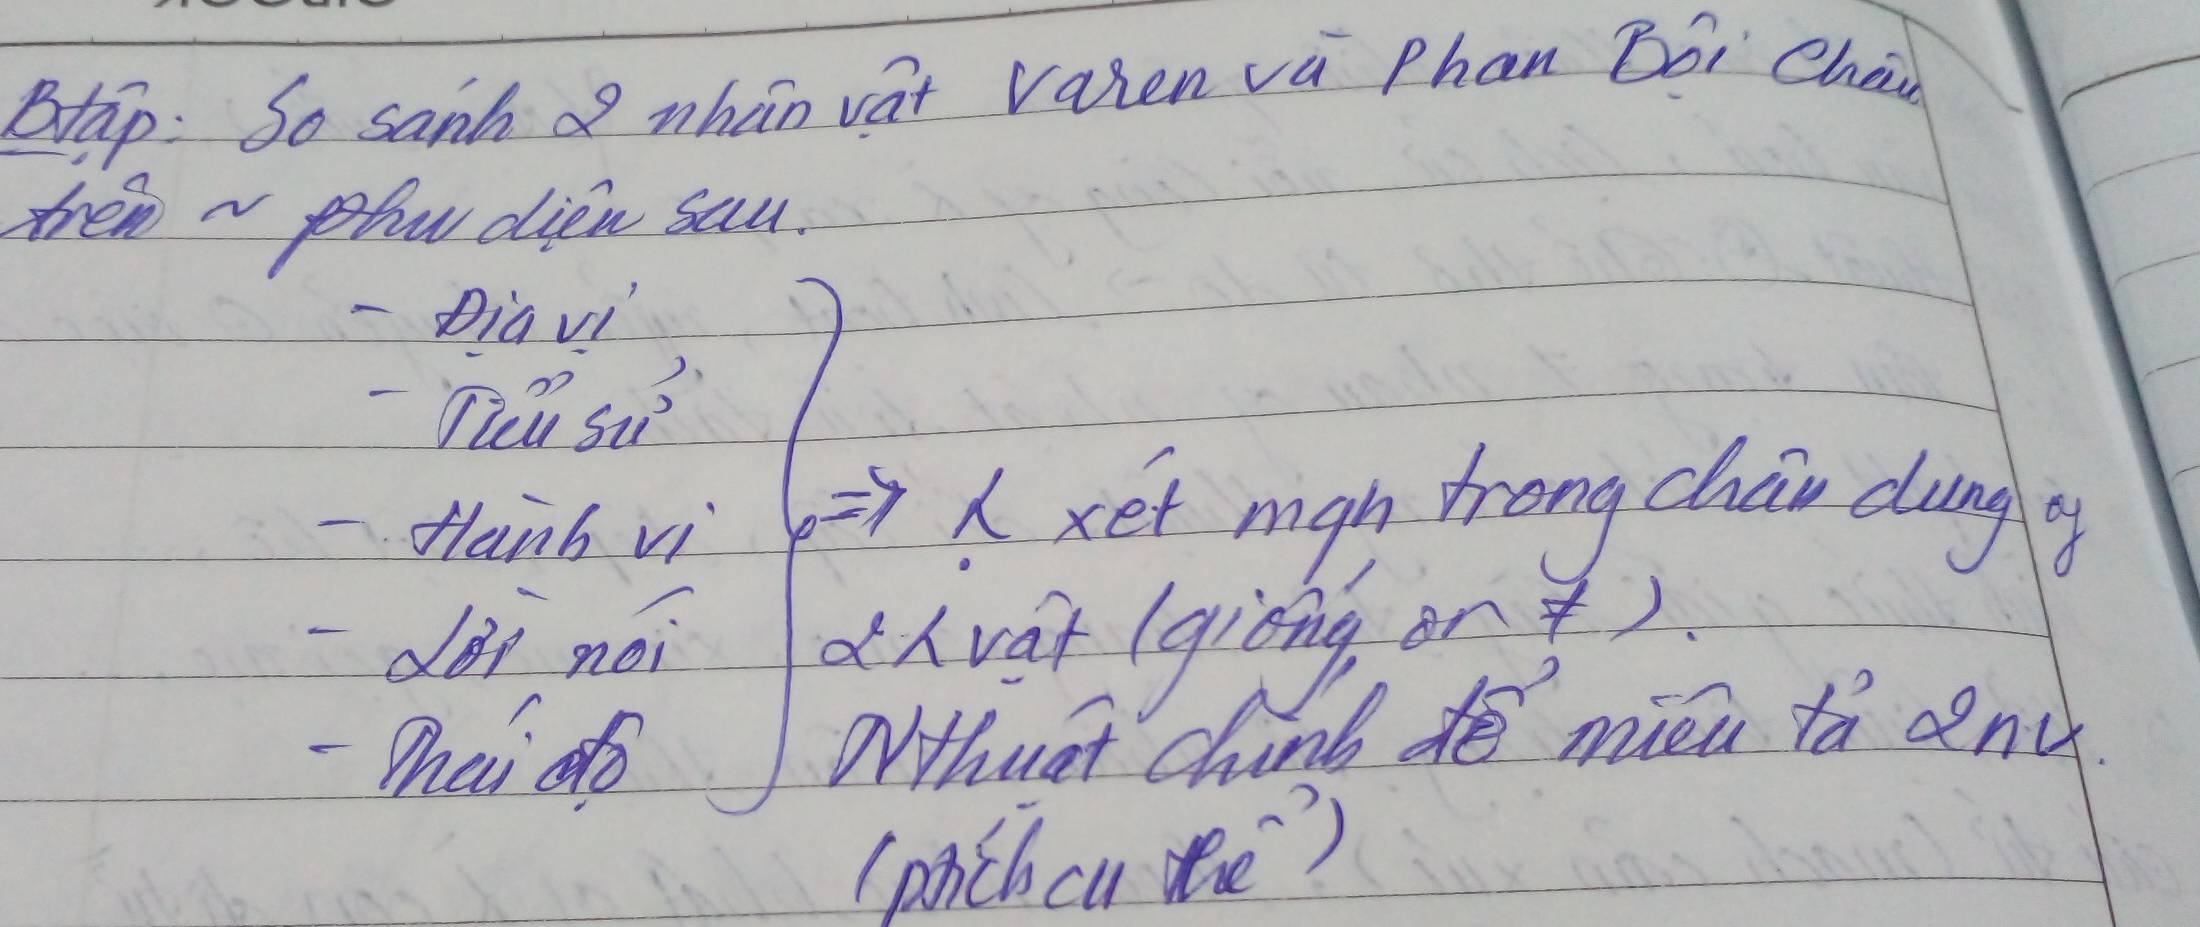 Btập: So sánh 2 nhân vật Varen và Phan Bội Châu
trên ~ phư diện sau.
- Địa vị
- Tiểu sử
- Hành vi
- Lời nói
- Thái độ
=> xét mqh trong chân dung
2 vật (giống or ≠).
Nthuật chính để miêu tả 2nv.
(ptích cụ thể)